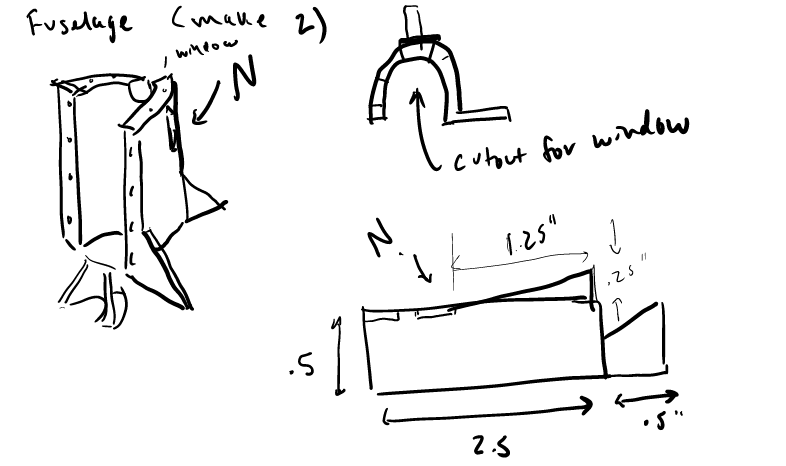 Fuselage (make 2)
window
N
cutout for window
N.
1.25"
.25"
.5
2.5
.5"